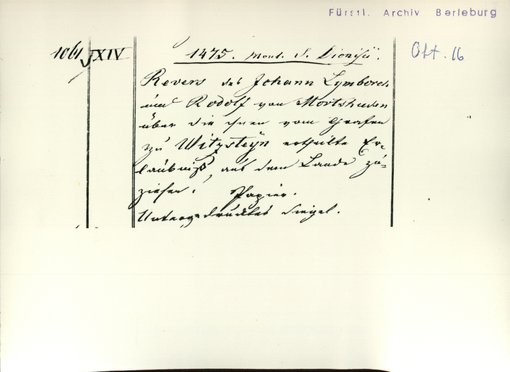 Fürstl. Archiv Berleburg
1061 XIV 1475. Mont. S. Dionisii. Okt. 16
Revers des Johann Lymborch
und Rodolf von
über die ihnen vom Grafen
zu Witzsteÿn ertheilte Er-
laubniß, aus dem Lande zu
ziehen. Papier.
Untergedrucktes Siegel.